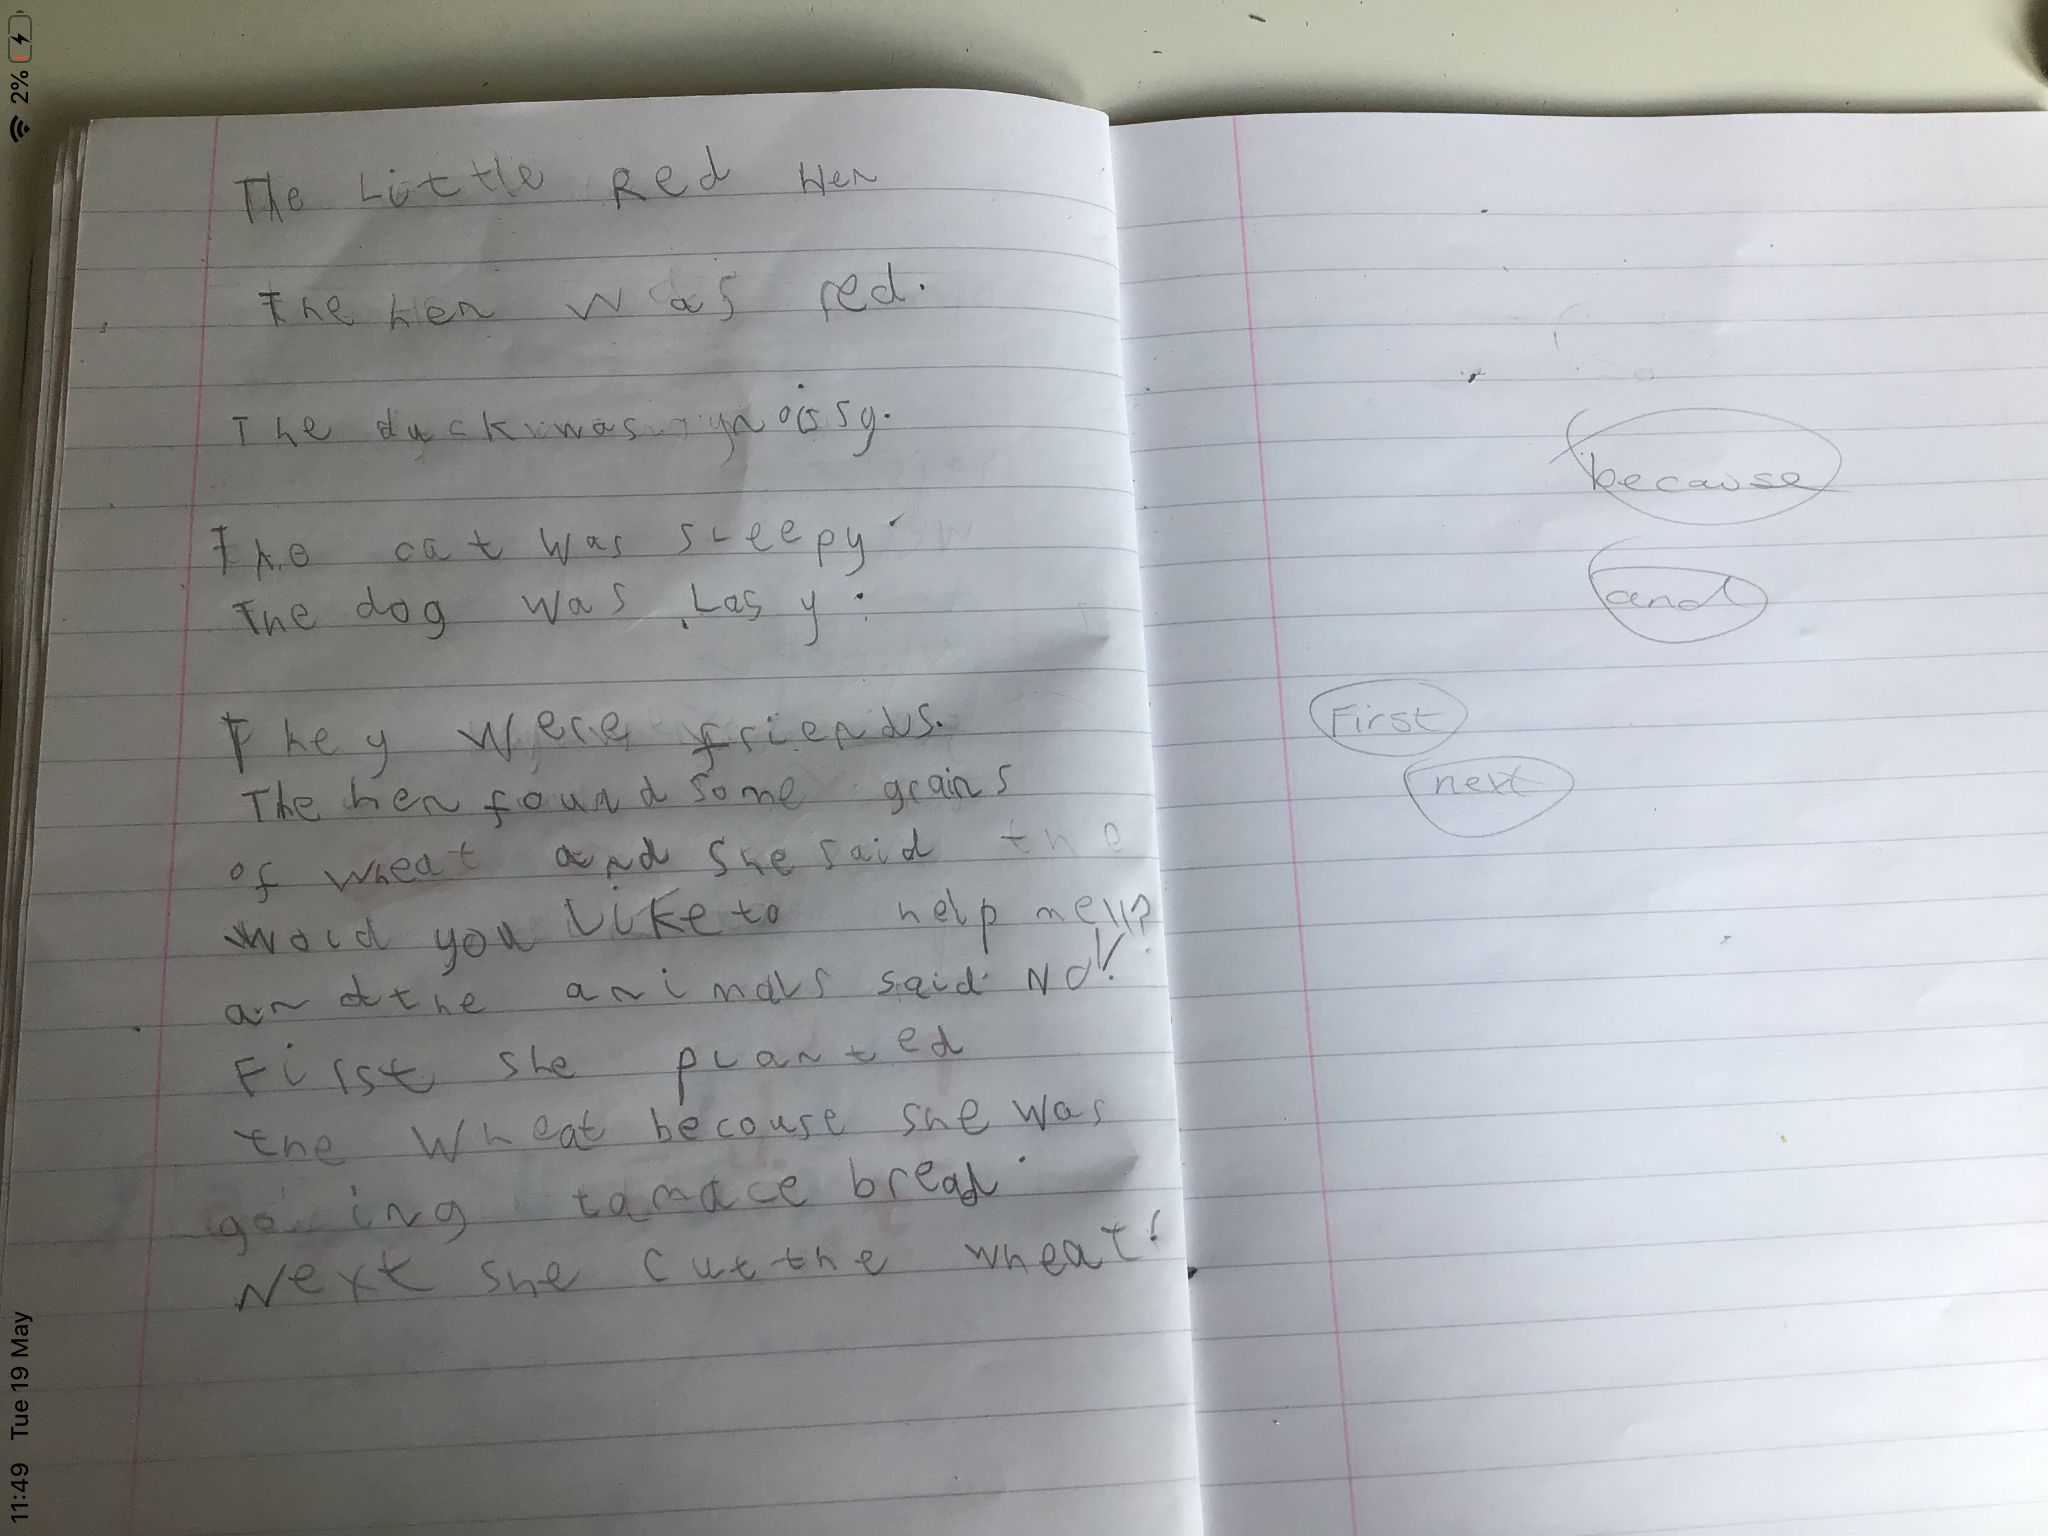 The Little Red Hen
The hen was red.
The duck was noissy.
The cat was sleepy.
The dog was Lasy.
They were friends.
The hen found some grains
of wheat and she said the
wold you Like to help me!!?
and the animals said No!!
First she planted
the wheat becouse she was
going to mace bread.
Next she cut the wheat!
because
and
First
next
11:49 Tue 19 May
2%